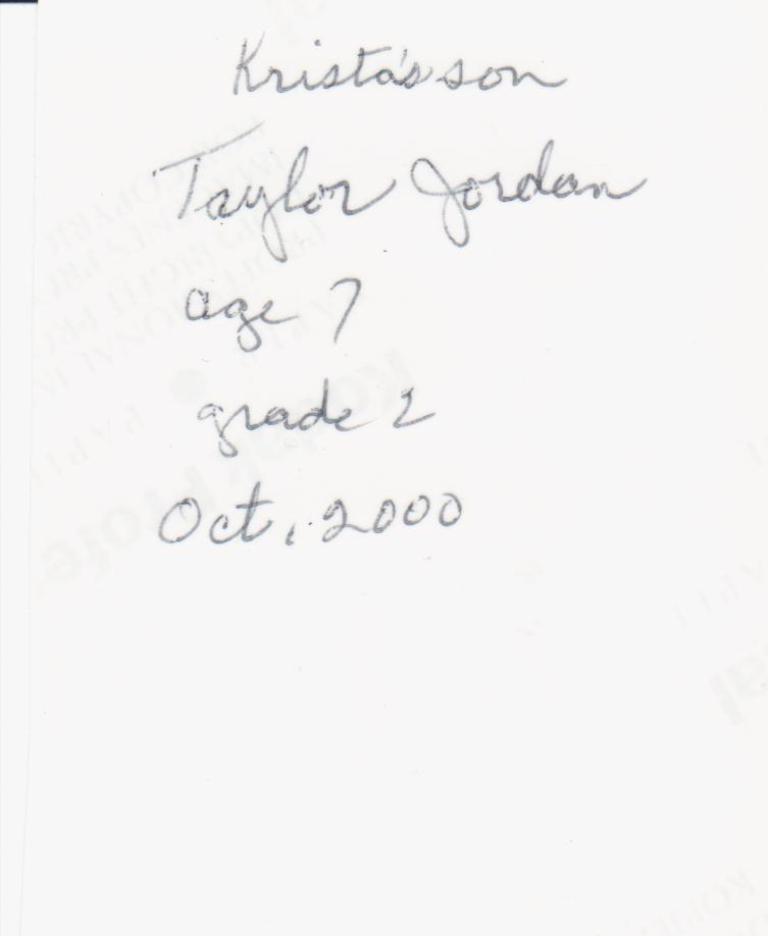 Krista's son
Taylor Jordan
age 7
grade 2
Oct, 2000